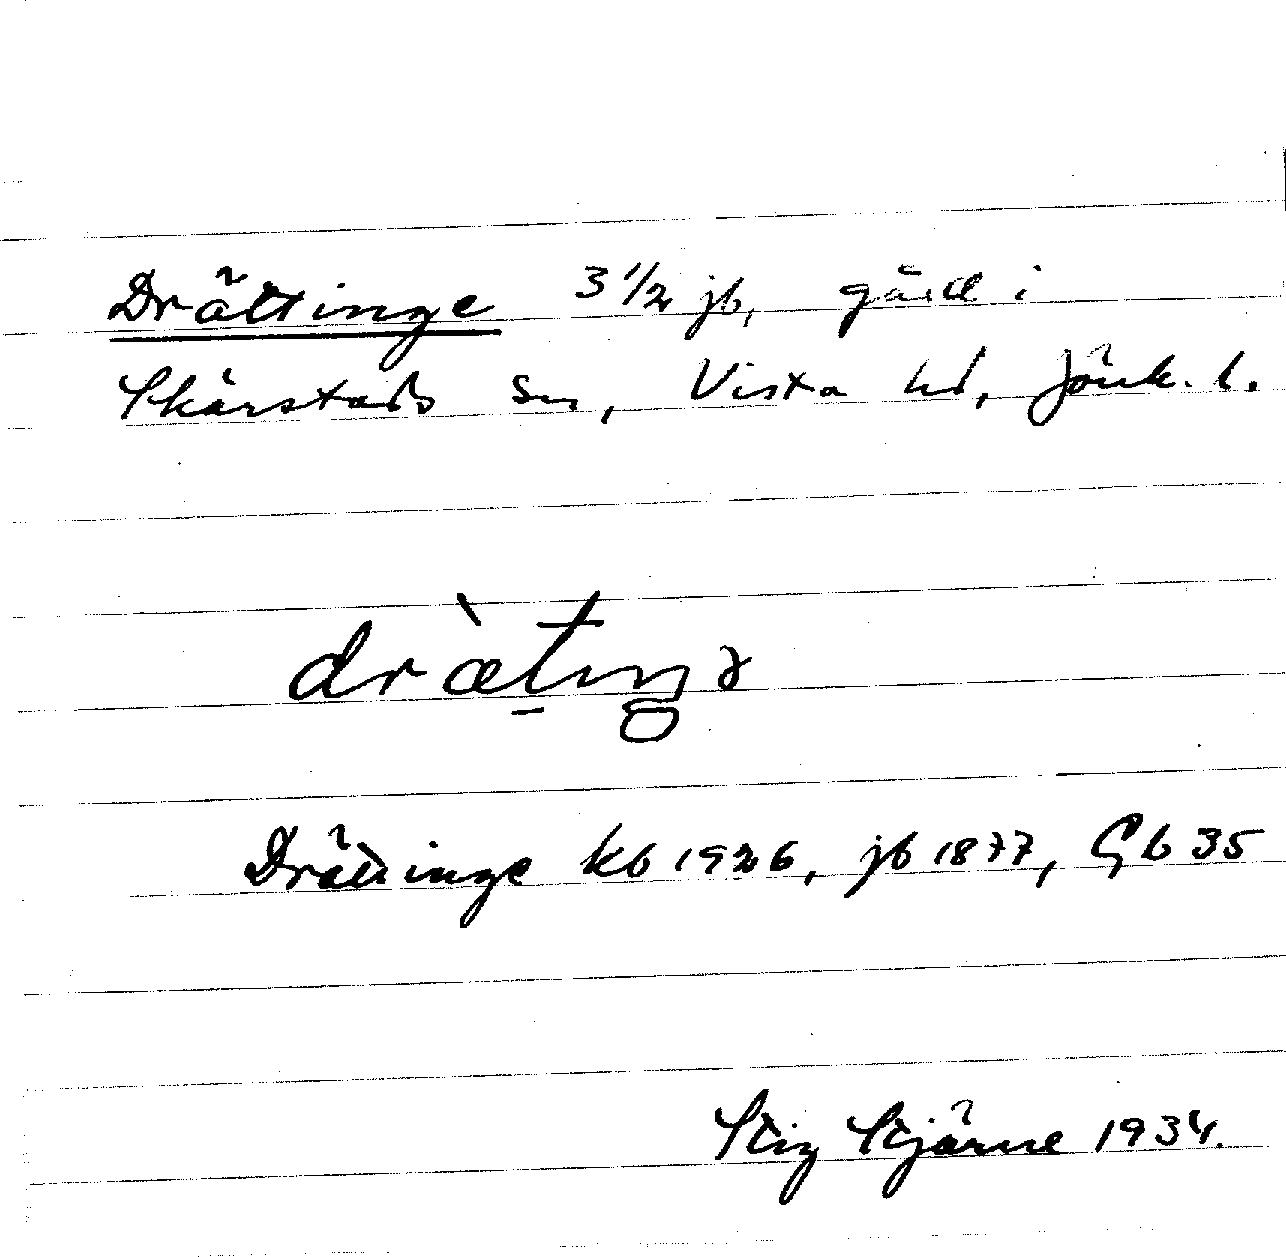 Drättinge 3 1/2 jb, gård i
Skärstads sn, Vista hd, Jönk. l.
dràetiŋə
Drättinge kb 1926, jb 1877, Gb 35
Stig Stjärne 1934.